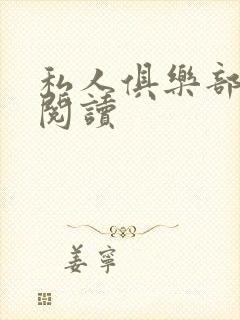 私人俱樂部
閱讀
姜寧